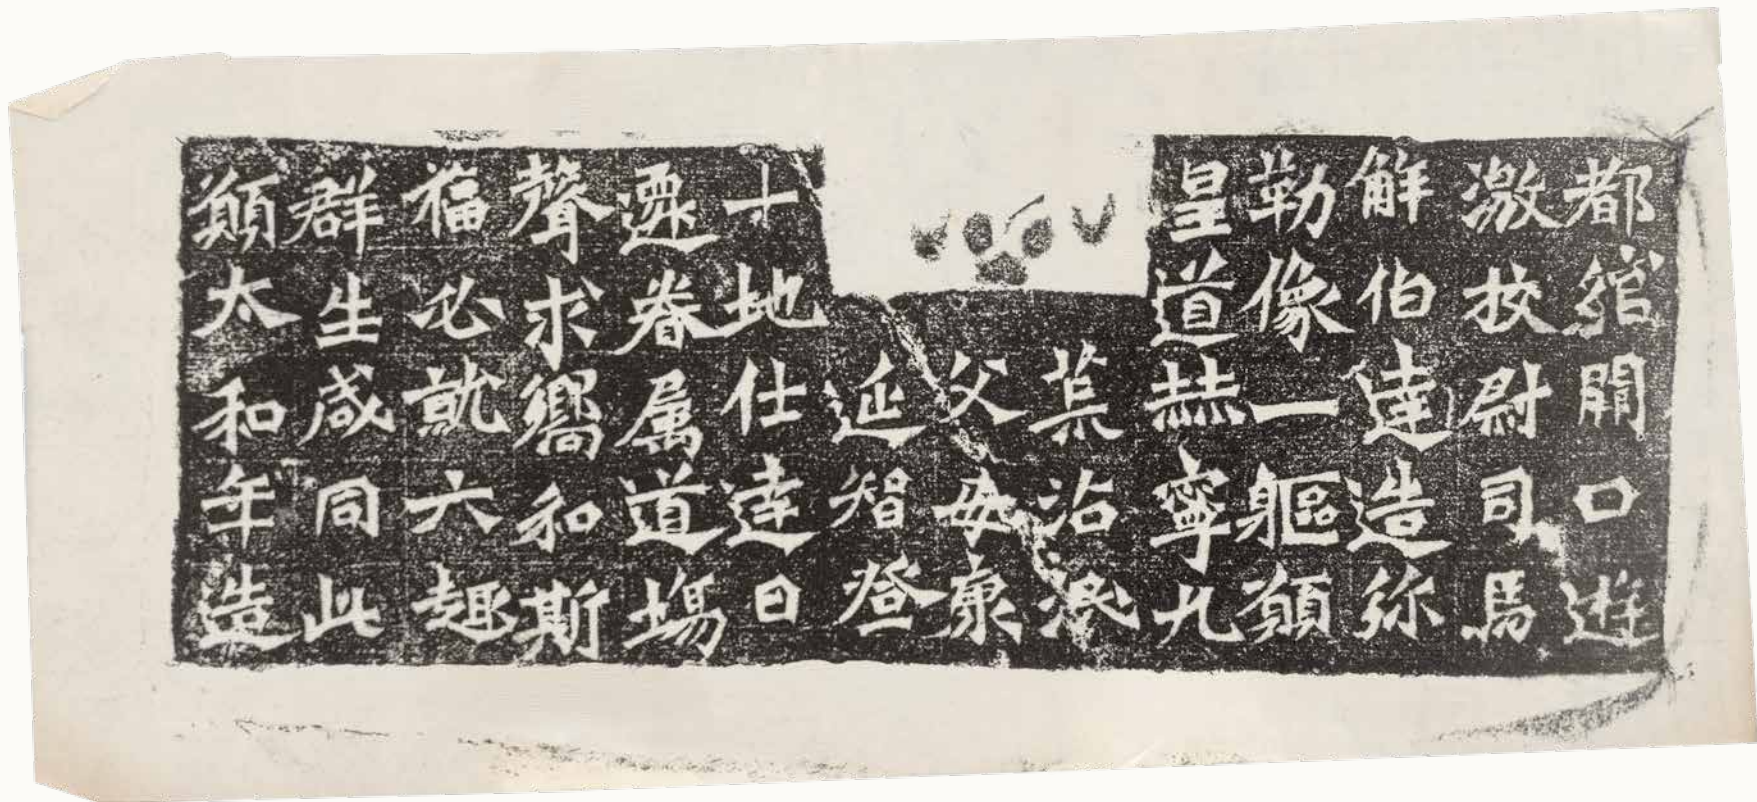 都綰關口遊
激校尉司馬
解伯達造弥
勒像一軀願
皇道赫寧九
荒沾泯
父母康
延智登
十地仕達日
遷眷属道場
聲求嚮和斯
福必就六趣
群生咸同此
願太和年造